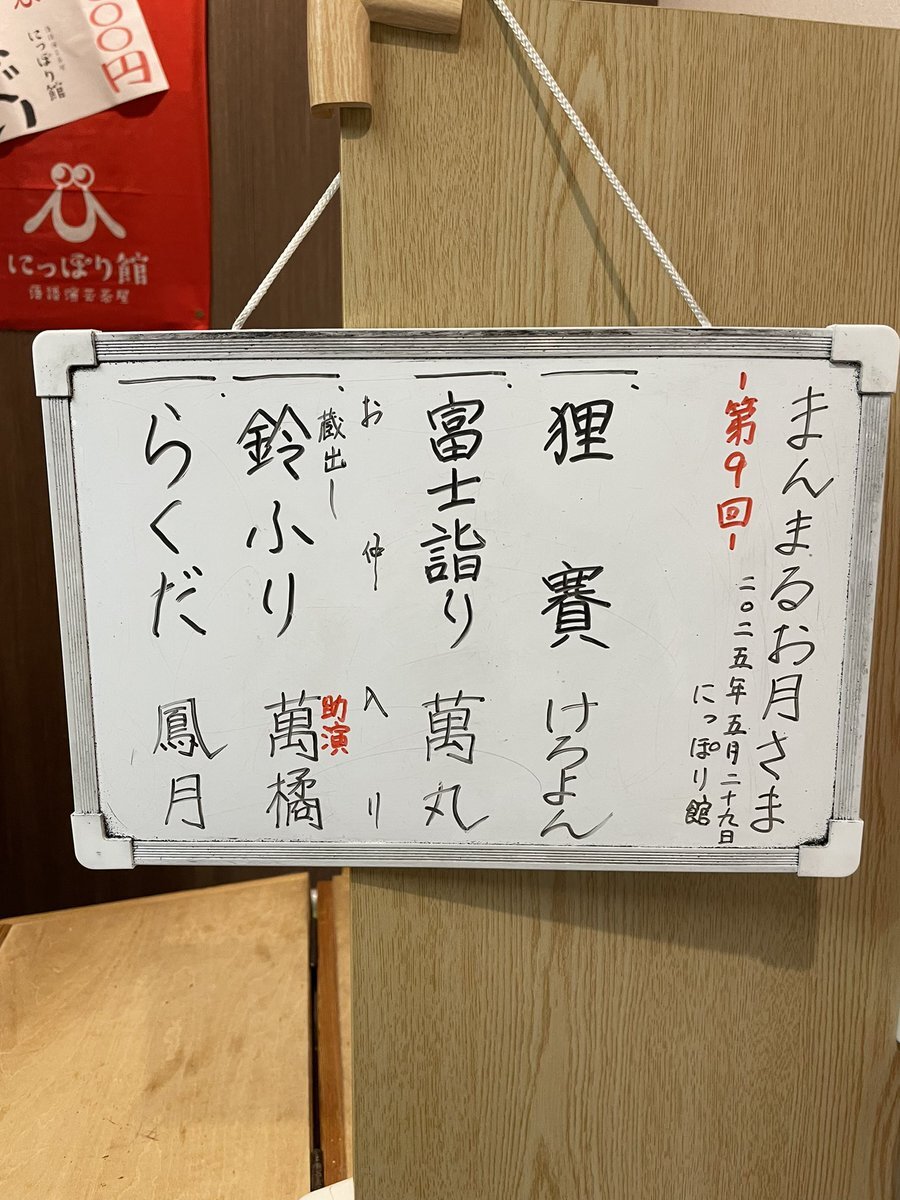 まんまるお月さま
-第9回-
二〇二五年五月二十九日
にっぽり館
一、狸賽 けろよん
一、富士詣り 萬丸
お仲入り
蔵出し
助演
一、鈴ふり 萬橘
一、らくだ 鳳月
00円
にっぽり館
にっぽり館
落語演芸茶屋